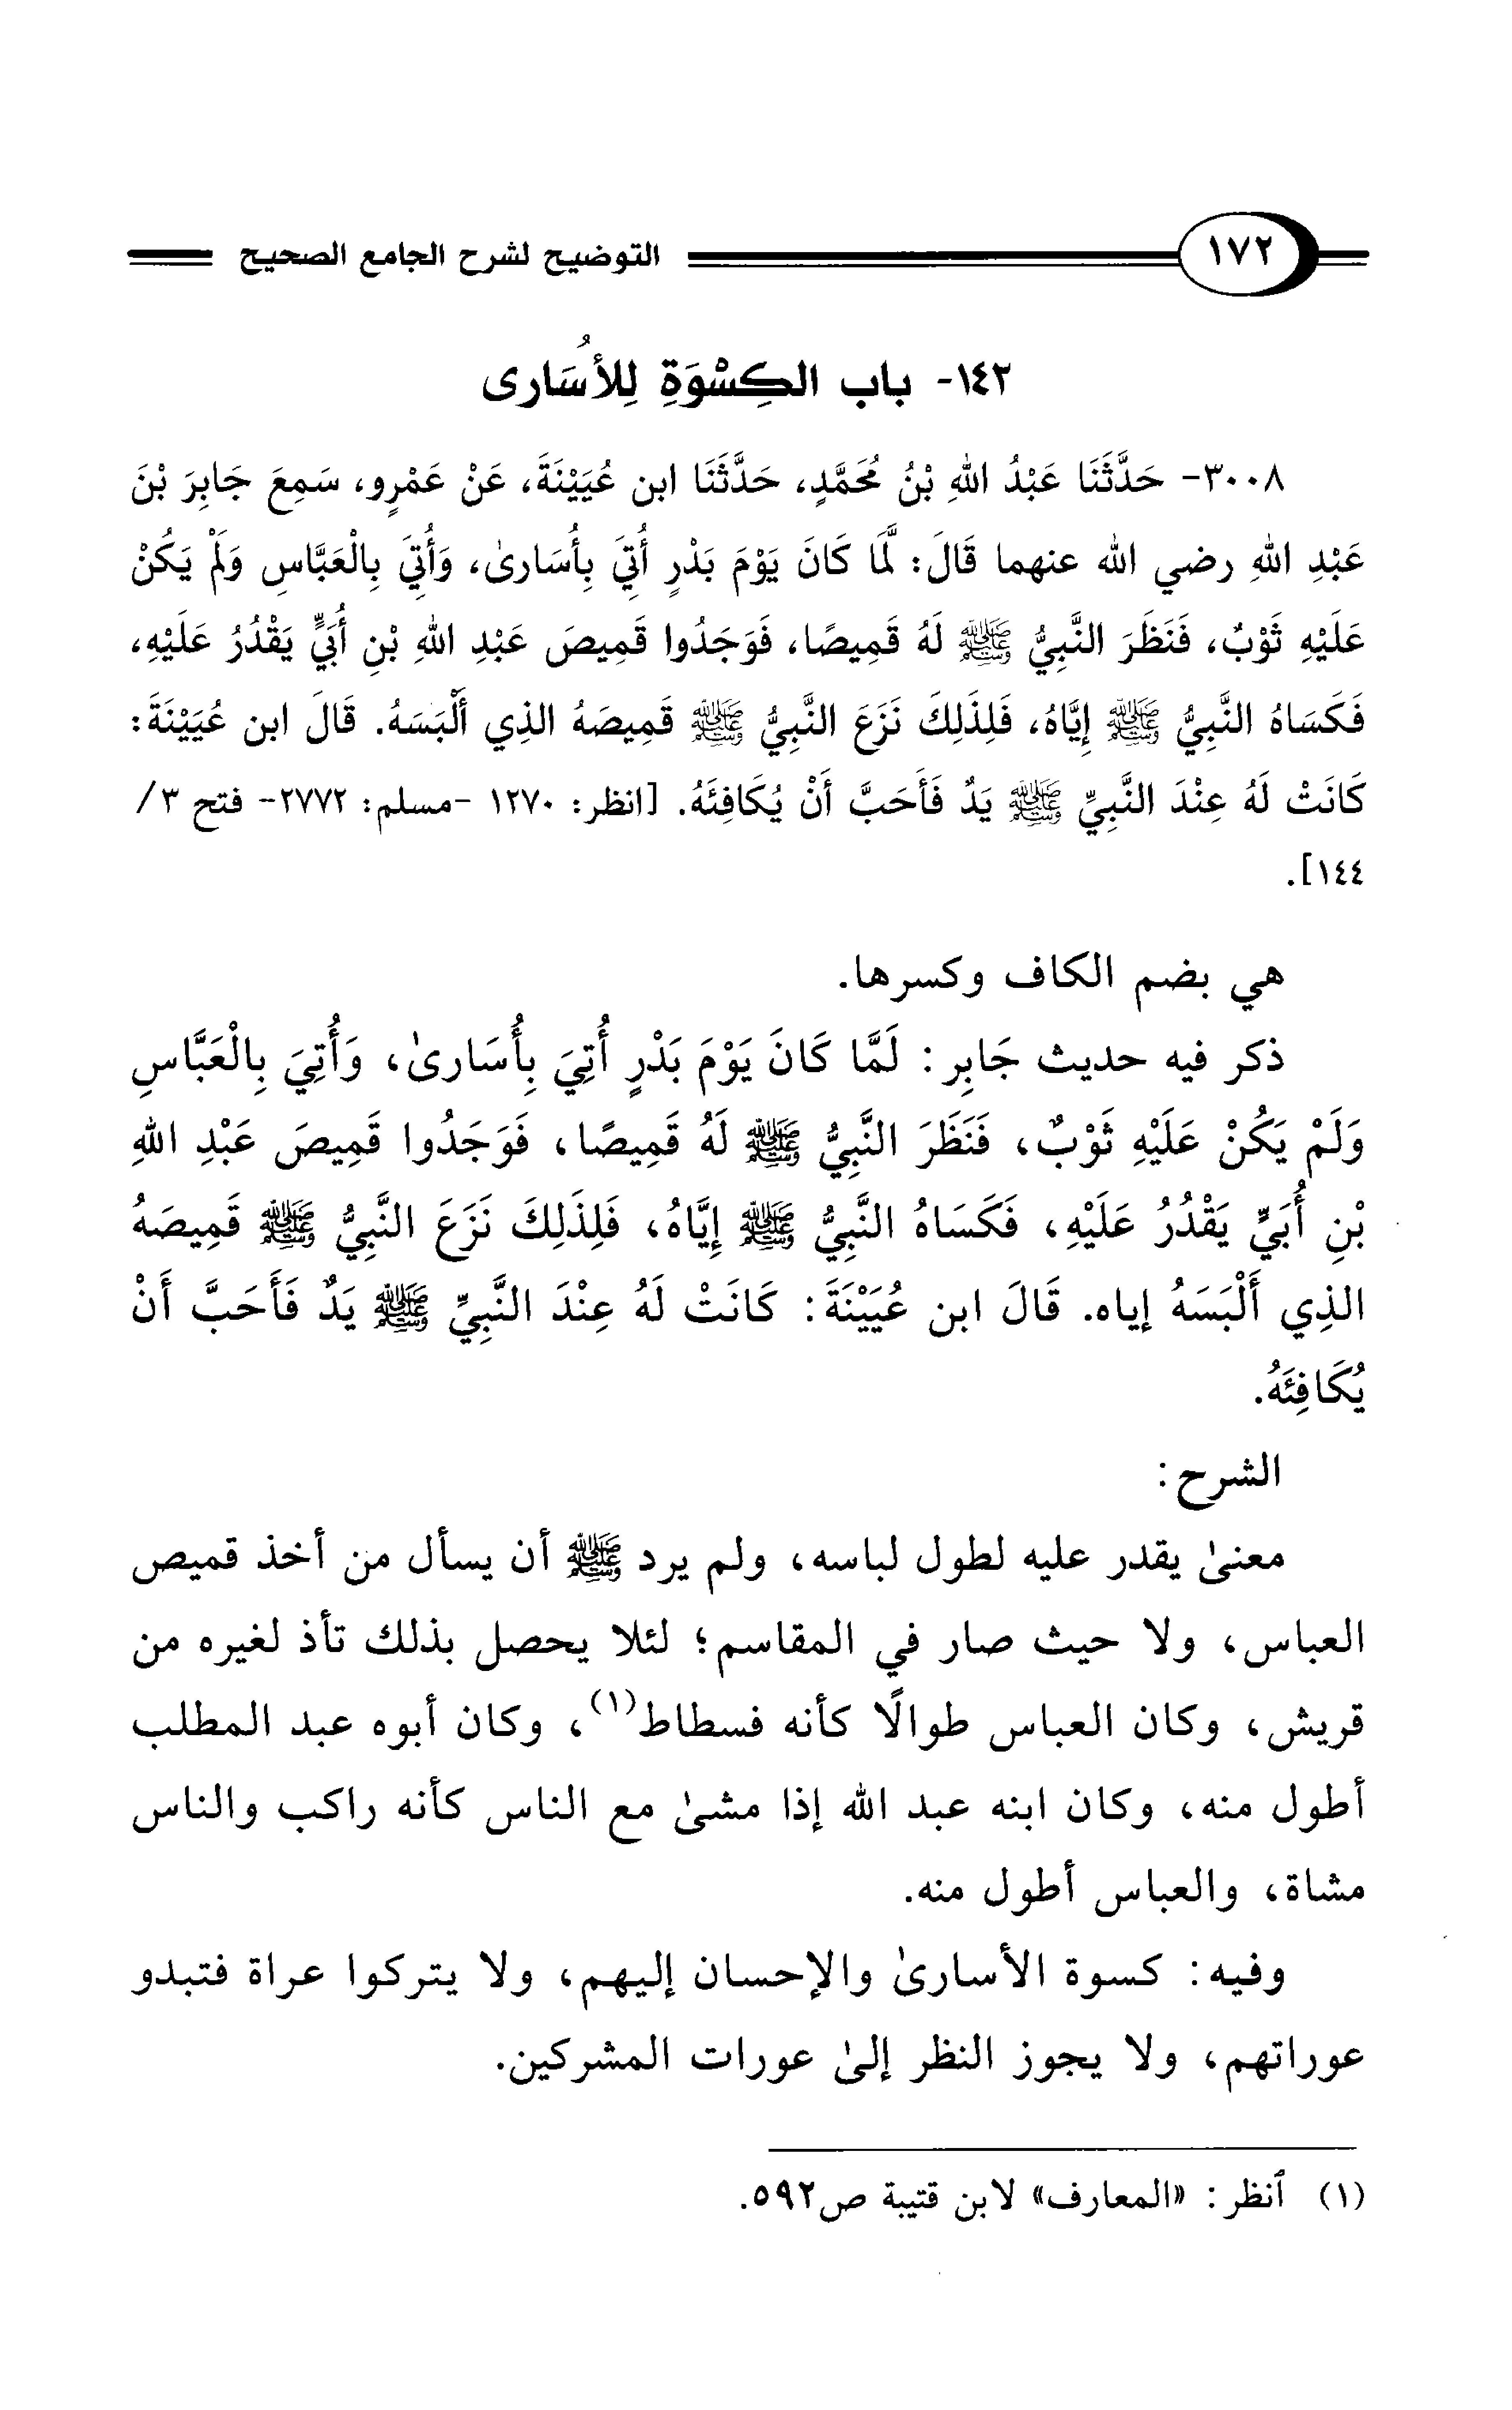 ١٧٢ التوضيح لشرح الجامع الصحيح
١٤٢- باب الكِسْوَةِ لِلأُسَارى
٣٠٠٨- حَدَّثَنَا عَبْدُ اللهِ بْنُ مُحَمَّدٍ، حَدَّثَنَا ابن عُيَيْنَةَ، عَنْ عَمْرٍو، سَمِعَ جَابِرَ بْنَ
عَبْدِ اللهِ رضي الله عنهما قَالَ: لَمَّا كَانَ يَوْمَ بَدْرٍ أُتِيَ بِأُسَارىٰ، وَأُتِيَ بِالْعَبَّاسِ وَلَمْ يَكُنْ
عَلَيْهِ ثَوْبٌ، فَنَظَرَ النَّبِيُّ ﷺ لَهُ قَمِيصًا، فَوَجَدُوا قَمِيصَ عَبْدِ اللهِ بْنِ أُبَيٍّ يَقْدُرُ عَلَيْهِ،
فَكَسَاهُ النَّبِيُّ ﷺ إِيَّاهُ، فَلِذَلِكَ نَزَعَ النَّبِيُّ ﷺ قَمِيصَهُ الذِي أَلْبَسَهُ. قَالَ ابن عُيَيْنَةَ:
كَانَتْ لَهُ عِنْدَ النَّبِيِّ ﷺ يَدٌ فَأَحَبَّ أَنْ يُكَافِئَهُ. [انظر: ١٢٧٠ -مسلم: ٢٧٧٢- فتح ٣/
١٤٤].
هي بضم الكاف وكسرها.
ذكر فيه حديث جَابِر: لَمَّا كَانَ يَوْمَ بَدْرٍ أُتِيَ بِأُسَارىٰ، وَأُتِيَ بِالْعَبَّاسِ
وَلَمْ يَكُنْ عَلَيْهِ ثَوْبٌ، فَنَظَرَ النَّبِيُّ ﷺ لَهُ قَمِيصًا، فَوَجَدُوا قَمِيصَ عَبْدِ اللهِ
بْنِ أُبَيٍّ يَقْدُرُ عَلَيْهِ، فَكَسَاهُ النَّبِيُّ ﷺ إِيَّاهُ، فَلِذَلِكَ نَزَعَ النَّبِيُّ ﷺ قَمِيصَهُ
الذِي أَلْبَسَهُ إياه. قَالَ ابن عُيَيْنَةَ: كَانَتْ لَهُ عِنْدَ النَّبِيِّ ﷺ يَدٌ فَأَحَبَّ أَنْ
يُكَافِئَهُ.
الشرح:
معنىٰ يقدر عليه لطول لباسه، ولم يرد ﷺ أن يسأل من أخذ قميص
العباس، ولا حيث صار في المقاسم؛ لئلا يحصل بذلك تأذ لغيره من
قريش، وكان العباس طوالًا كأنه فسطاط(١)، وكان أبوه عبد المطلب
أطول منه، وكان ابنه عبد الله إذا مشىٰ مع الناس كأنه راكب والناس
مشاة، والعباس أطول منه.
وفيه: كسوة الأسارىٰ والإحسان إليهم، ولا يتركوا عراة فتبدو
عوراتهم، ولا يجوز النظر إلىٰ عورات المشركين.
(١) ٱنظر: «المعارف» لابن قتيبة ص٥٩٢.